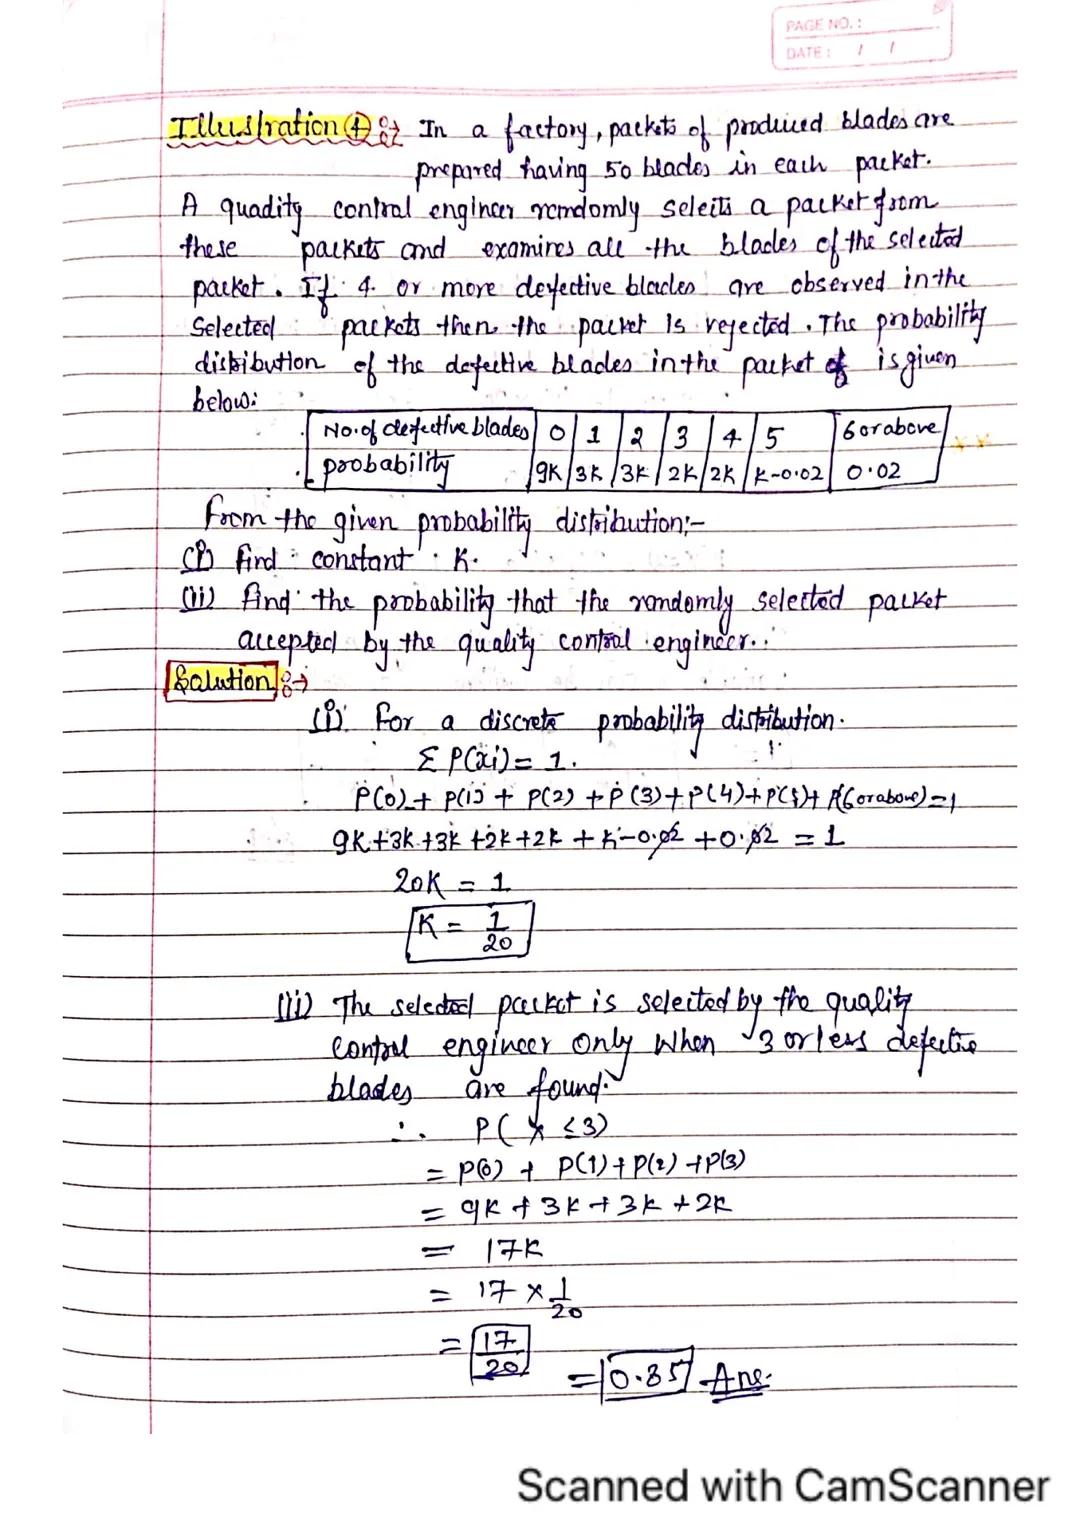 PAGE NO. :
DATE : / /
Illustration ④ :→ In a factory, packets of produced blades are
prepared having 50 blades in each packet.
A quadity control engineer rendomly selects a packet from
these packets and examines all the blades of the selected
packet. If 4 or more defective blades are observed in the
Selected packets then the packet is rejected. The probability
distribution of the defective blades in the packet of is given
below:
No. of defective blades 0 1 2 3 4 5 6 or above
probability 9K 3K 3K 2K 2K K-0.02 0.02
from the given probability distribution:-
(i) find constant K.
(ii) find the probability that the randomly selected packet
accepted by the quality control engineer.
Solution :→
(i) for a discrete probability distribution.
Σ P(xi) = 1.
P(0) + P(1) + P(2) + P(3) + P(4) + P(5) + P(6 or above) = 1
9K + 3K + 3K + 2K + 2K + K - 0.02 + 0.02 = 1
20K = 1
K = 1/20
(ii) The selected packet is selected by the quality
control engineer only when 3 or less defective
blades are found.
∴ P( X ≤ 3)
= P(0) + P(1) + P(2) + P(3)
= 9K + 3K + 3K + 2K
= 17K
= 17 × 1/20
= 17/20 = 0.85 Ans.
Scanned with CamScanner